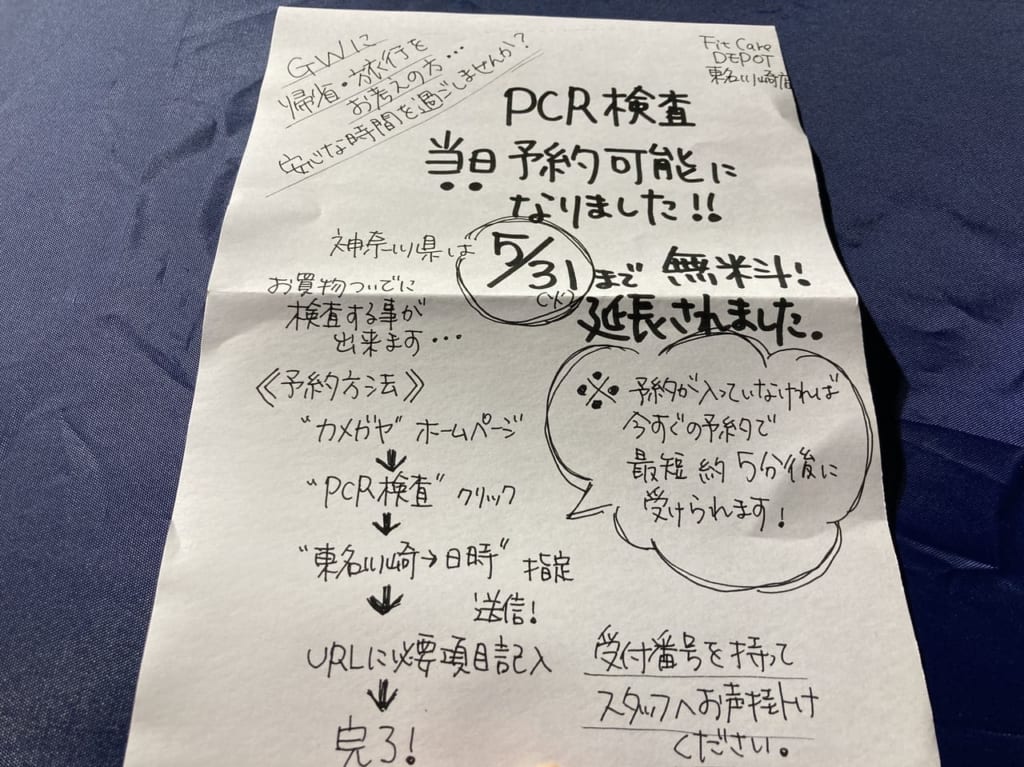 GWに
帰省・旅行を
お考えの方…
安心な時間を過ごしませんか？
Fit Care
DEPOT
東名川崎店
PCR検査
当日予約可能に
なりました!!
神奈川県は
5/31
(火)
まで 無料!
延長されました。
お買物ついでに
検査する事が
出来ます…
《予約方法》
"カメガヤ" ホームページ
↓
"PCR検査" クリック
↓
"東名川崎→日時" 指定
送信!
↓
URLに必要項目記入
↓
完了!
※ 予約が入っていなければ
今すぐの予約で
最短 約 5分後に
受けられます!
受付番号を持って
スタッフへお声掛け
ください。